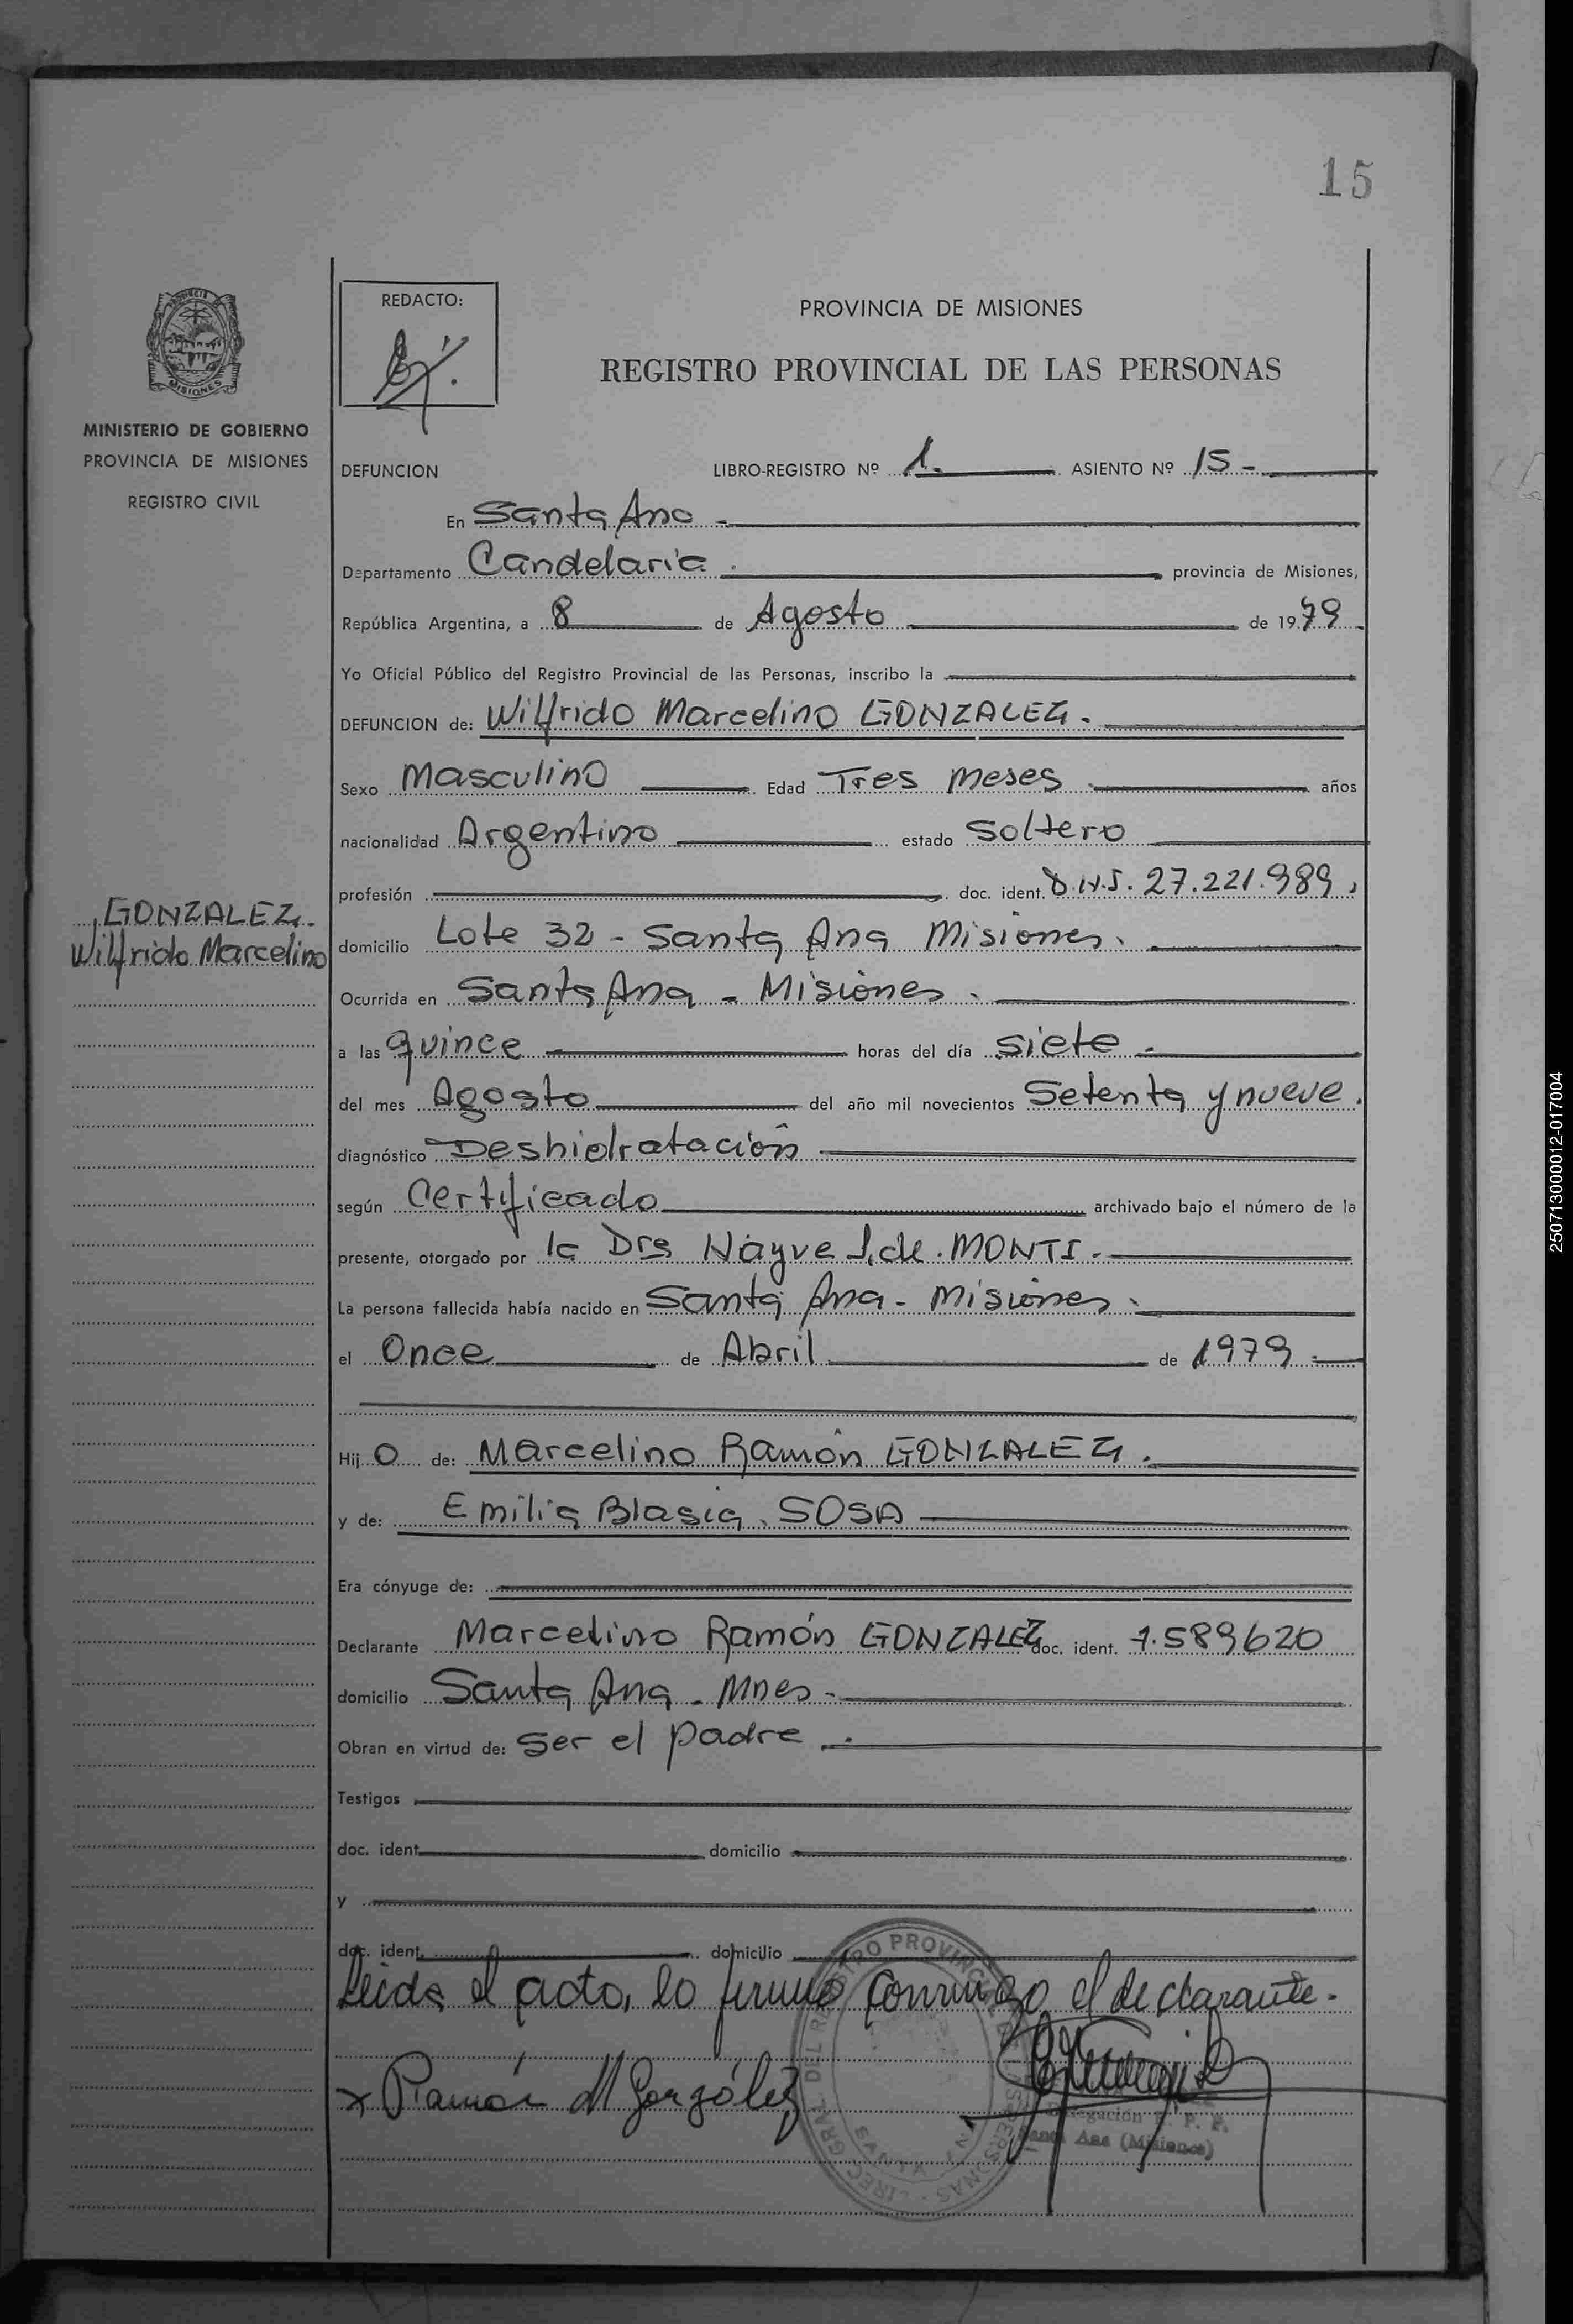 15
REDACTO:
PROVINCIA DE MISIONES
REGISTRO PROVINCIAL DE LAS PERSONAS
MISIONES
MINISTERIO DE GOBIERNO
PROVINCIA DE MISIONES
REGISTRO CIVIL
DEFUNCION LIBRO-REGISTRO Nº 1. ASIENTO Nº 15 -
En Santa Ana -
Departamento Candelaria . provincia de Misiones,
República Argentina, a 8 de Agosto de 1979
Yo Oficial Público del Registro Provincial de las Personas, inscribo la
DEFUNCION de: Wilfrido Marcelino GONZALEZ.
Sexo Masculino Edad Tres meses . años
nacionalidad Argentino estado Soltero
profesión doc. ident. D.N.I. 27.221.989,
GONZALEZ.
Wilfrido Marcelino
domicilio Lote 32 - Santa Ana Misiones.
Ocurrida en Santa Ana - Misiones .
a las quince - horas del día siete -
del mes Agosto del año mil novecientos Setenta y nueve.
diagnóstico Deshidratación
según Certificado archivado bajo el número de la
presente, otorgado por la Dra Nayve de MONTI.
La persona fallecida había nacido en Santa Ana - Misiones.
el Once de Abril de 1979 -
Hijo de: Marcelino Ramón GONZALEZ.
y de: Emilia Blasia SOSA
Era cónyuge de:
Declarante Marcelino Ramón GONZALEZ doc. ident. 7.589620
domicilio Santa Ana - Mnes -
Obran en virtud de: Ser el padre .
Testigos
doc. ident. domicilio
y
doc. ident. domicilio
Leida el acta, la firma conmigo el declarante.
x Ramón M González
Delegación R. P. P.
Santa Ana (Misiones)
2507130000012-017004